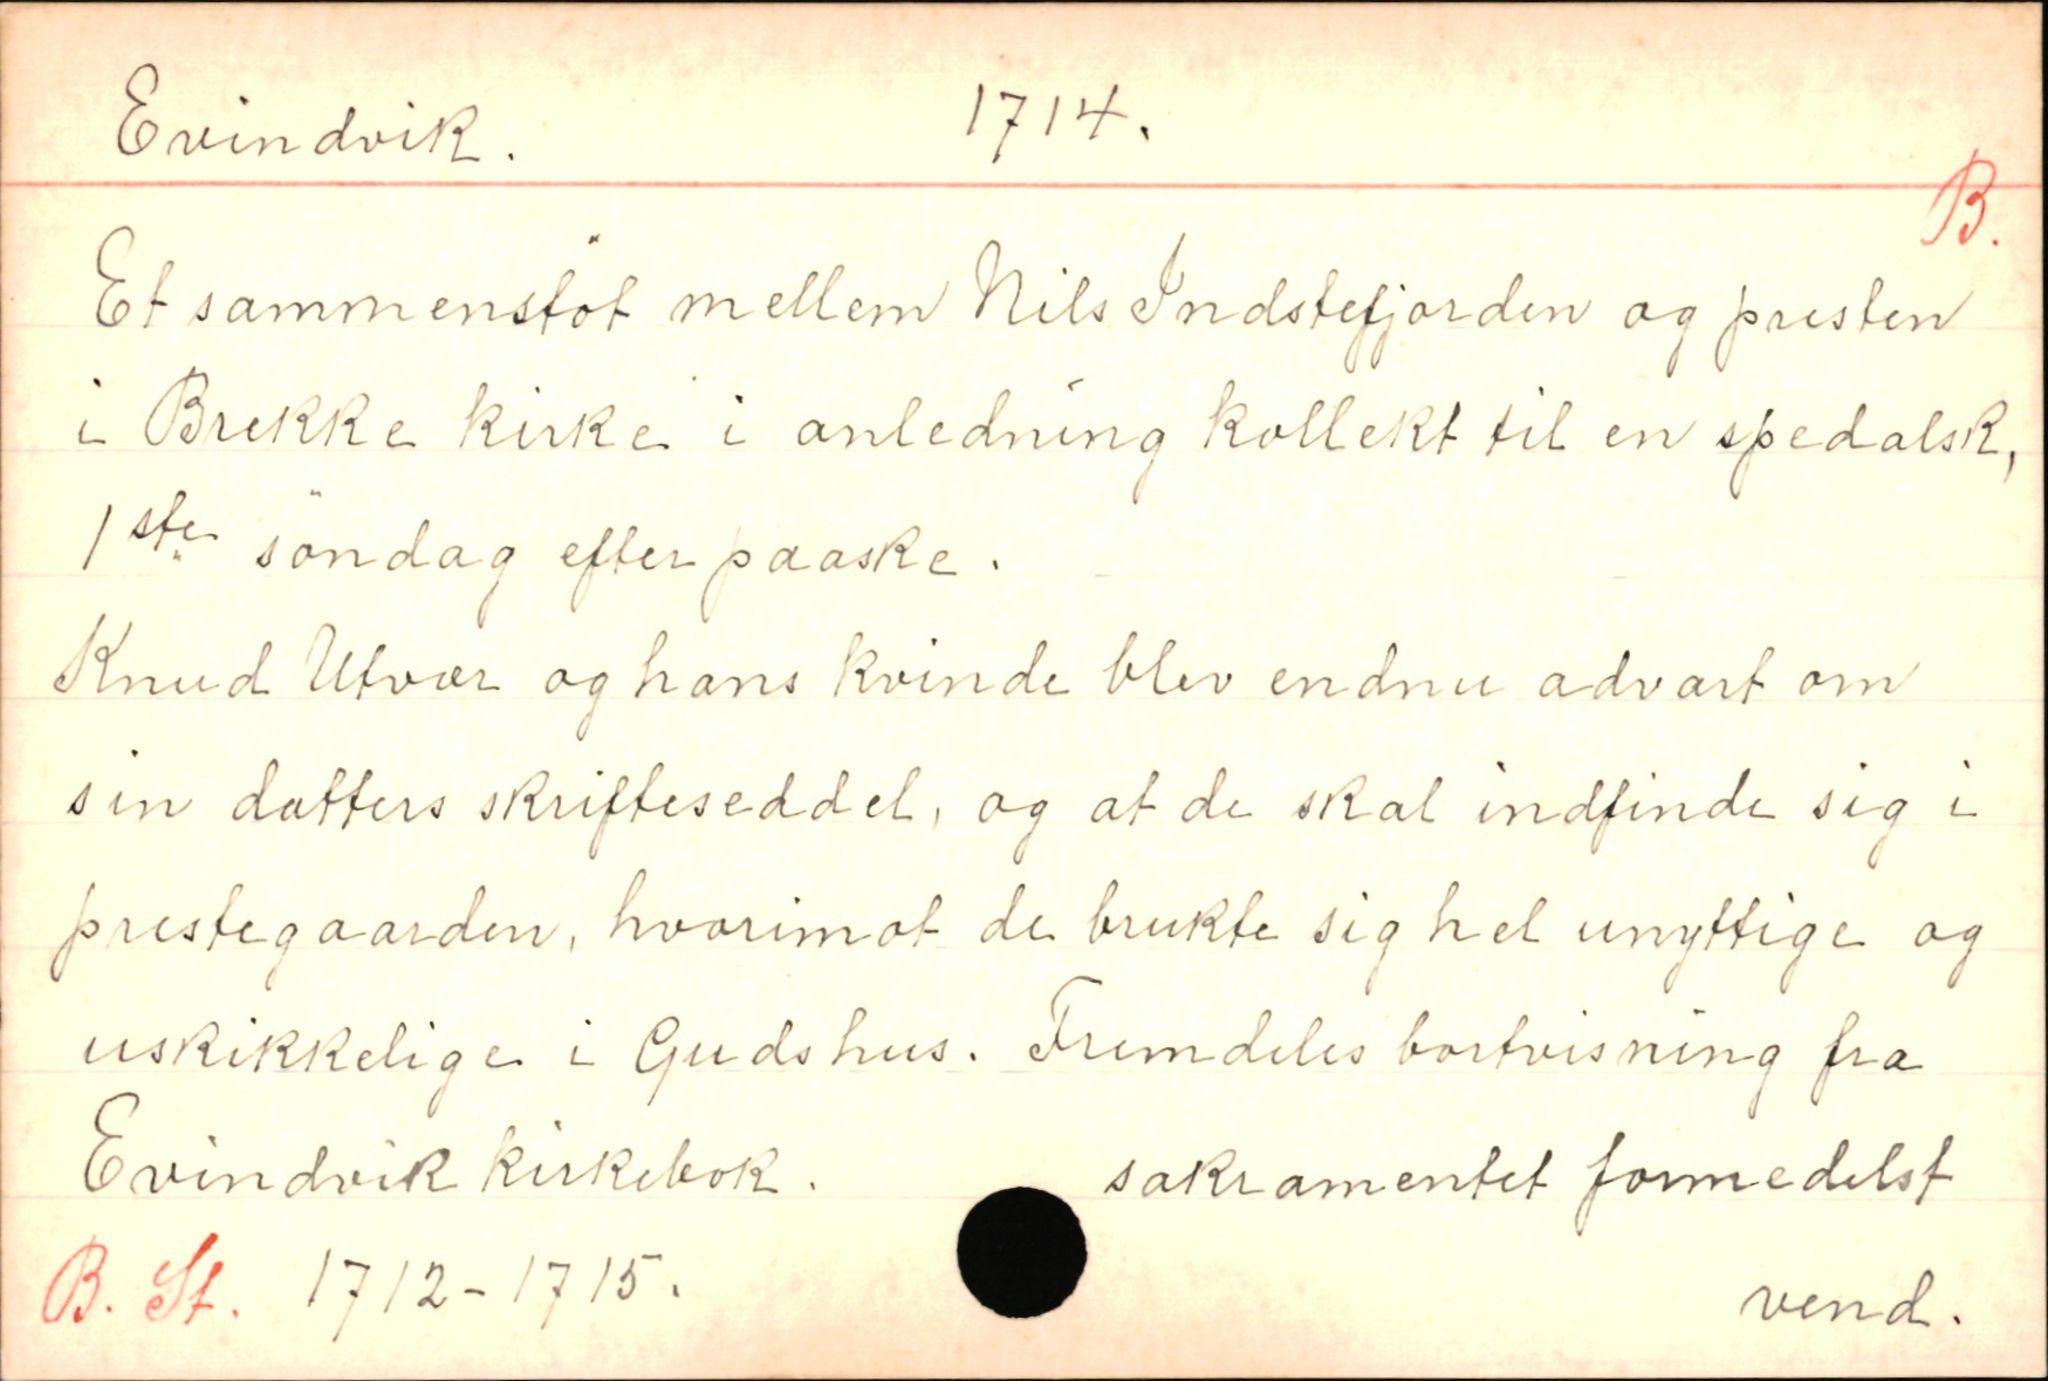 Evindvik. 1714.
B.
Et sammenstöt mellem Nils Indstefjorden og presten
i Brekke kirke i anledning kollekt til en spedalsk,
1ste söndag efter paaske.
Knud Utvær og hans kvinde blev endnu advart om
sin datters skrifteseddel, og at de skal indfinde sig i
prestegaarden, hvorimot de brukte sig hel unyttige og
uskikkelige i Guds hus. Fremdeles bortvisning fra
Evindvik kirkebok. sakramentet formedelst
B. St. 1712-1715.
vend.